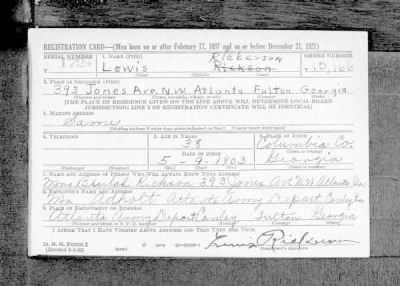 REGISTRATION CARD—(Men born on or after February 17, 1897 and on or before December 31, 1921)
SERIAL NUMBER 1. NAME (Print) Rickerson ORDER NUMBER
Lewis Rickson 10,166
(First) (Middle) (Last)
2. PLACE OF RESIDENCE (Print)
393 Jones Ave, N.W. Atlanta Fulton Georgia
(Number and street) (Town, township, village, or city) (County) (State)
[THE PLACE OF RESIDENCE GIVEN ON THE LINE ABOVE WILL DETERMINE LOCAL BOARD
JURISDICTION; LINE 2 OF REGISTRATION CERTIFICATE WILL BE IDENTICAL]
3. MAILING ADDRESS
Same
[Mailing address if other than place indicated on line 2. If same insert word same]
4. TELEPHONE 5. AGE IN YEARS 6. PLACE OF BIRTH
38 Columbia Co.
DATE OF BIRTH (Town or county)
5-9-1903 Georgia
(Exchange) (Number) (Mo.) (Day) (Yr.) (State or country)
7. NAME AND ADDRESS OF PERSON WHO WILL ALWAYS KNOW YOUR ADDRESS
Rickson 393 Jones Ave N.W. Atlanta Ga
8. EMPLOYER'S NAME AND ADDRESS
Atlanta Army Depot Conley Ga
9. PLACE OF EMPLOYMENT OR BUSINESS
Atlanta Army Depot Conley Fulton Georgia
(Number and street or R. F. D. number) (Town) (County) (State)
I AFFIRM THAT I HAVE VERIFIED ABOVE ANSWERS AND THAT THEY ARE TRUE.
D. S. S. Form 1
(Revised 1-1-42) (over)